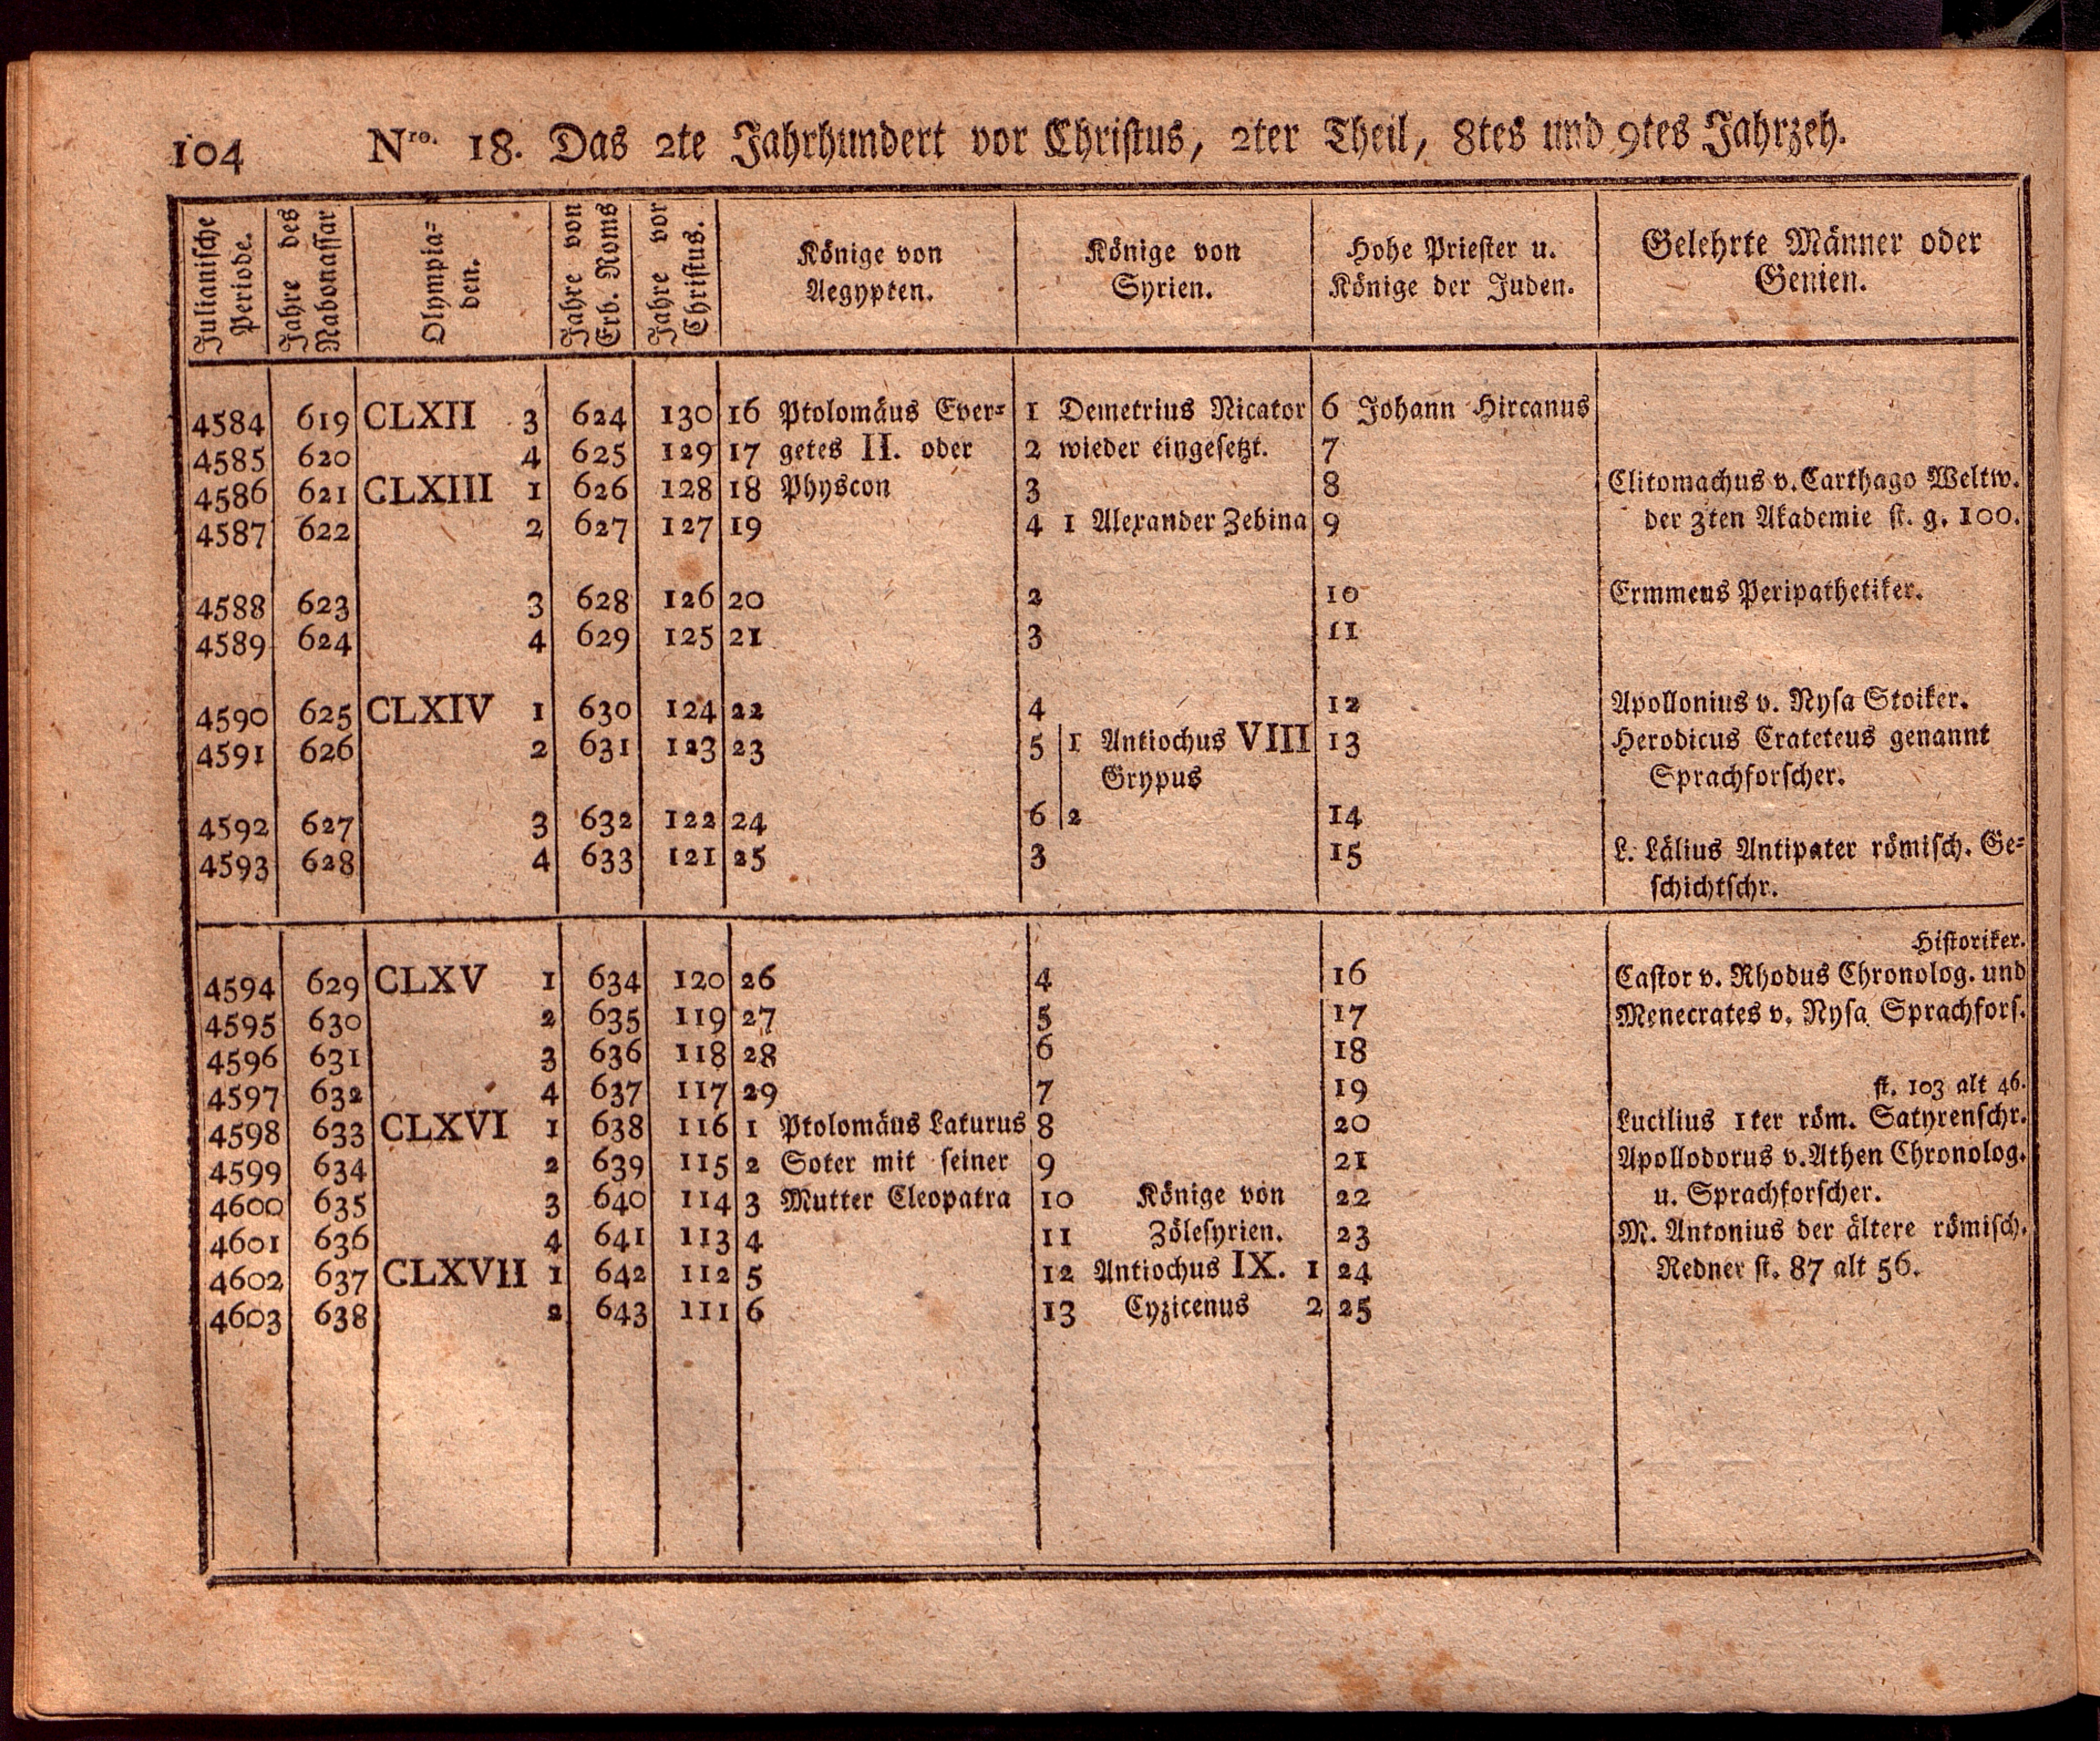 104 Nro. 18. Das 2te Jahrhundert vor Christus, 2ter Theil, 8tes und 9tes Jahrzeh.
Julianische Periode. Jahre des Nabonassar Olympia= den. Jahre von Erb. Roms Jahre vor Christus. Könige von Aegypten. Könige von Syrien. Hohe Priester u. Könige der Juden. Gelehrte Männer oder Genien.
4584 619 CLXII 3 624 130 16 Ptolomäus Ever= 1 Demetrius Nicator 6 Johann Hircanus
4585 620 4 625 129 17 getes II. oder 2 wieder eingesetzt. 7
4586 621 CLXIII 1 626 128 18 Physcon 3 8 Clitomachus v. Carthago Weltw.
4587 622 2 627 127 19 4 1 Alexander Zebina 9 der 3ten Akademie st. g. 100.
4588 623 3 628 126 20 2 10 Ermmeus Peripathetiker.
4589 624 4 629 125 21 3 11
4590 625 CLXIV 1 630 124 22 4 12 Apollonius v. Nysa Stoiker.
4591 626 2 631 123 23 5 1 Antiochus VIII 13 Herodicus Crateteus genannt
Grypus Sprachforscher.
4592 627 3 632 122 24 6 2 14
4593 628 4 633 121 25 3 15 L. Lälius Antipater römisch. Ge=
schichtschr.
Historiker.
4594 629 CLXV 1 634 120 26 4 16 Castor v. Rhodus Chronolog. und
4595 630 2 635 119 27 5 17 Menecrates v. Nysa Sprachfors.
4596 631 3 636 118 28 6 18
4597 632 4 637 117 29 7 19 st. 103 alt 46.
4598 633 CLXVI 1 638 116 1 Ptolomäus Laturus 8 20 Lucilius 1ter röm. Satyrenschr.
4599 634 2 639 115 2 Soter mit seiner 9 21 Apollodorus v. Athen Chronolog.
4600 635 3 640 114 3 Mutter Cleopatra 10 Könige von 22 u. Sprachforscher.
4601 636 4 641 113 4 11 Zölesyrien. 23 M. Antonius der ältere römisch.
4602 637 CLXVII 1 642 112 5 12 Antiochus IX. 1 24 Redner st. 87 alt 56.
4603 638 2 643 111 6 13 Cyzicenus 2 25